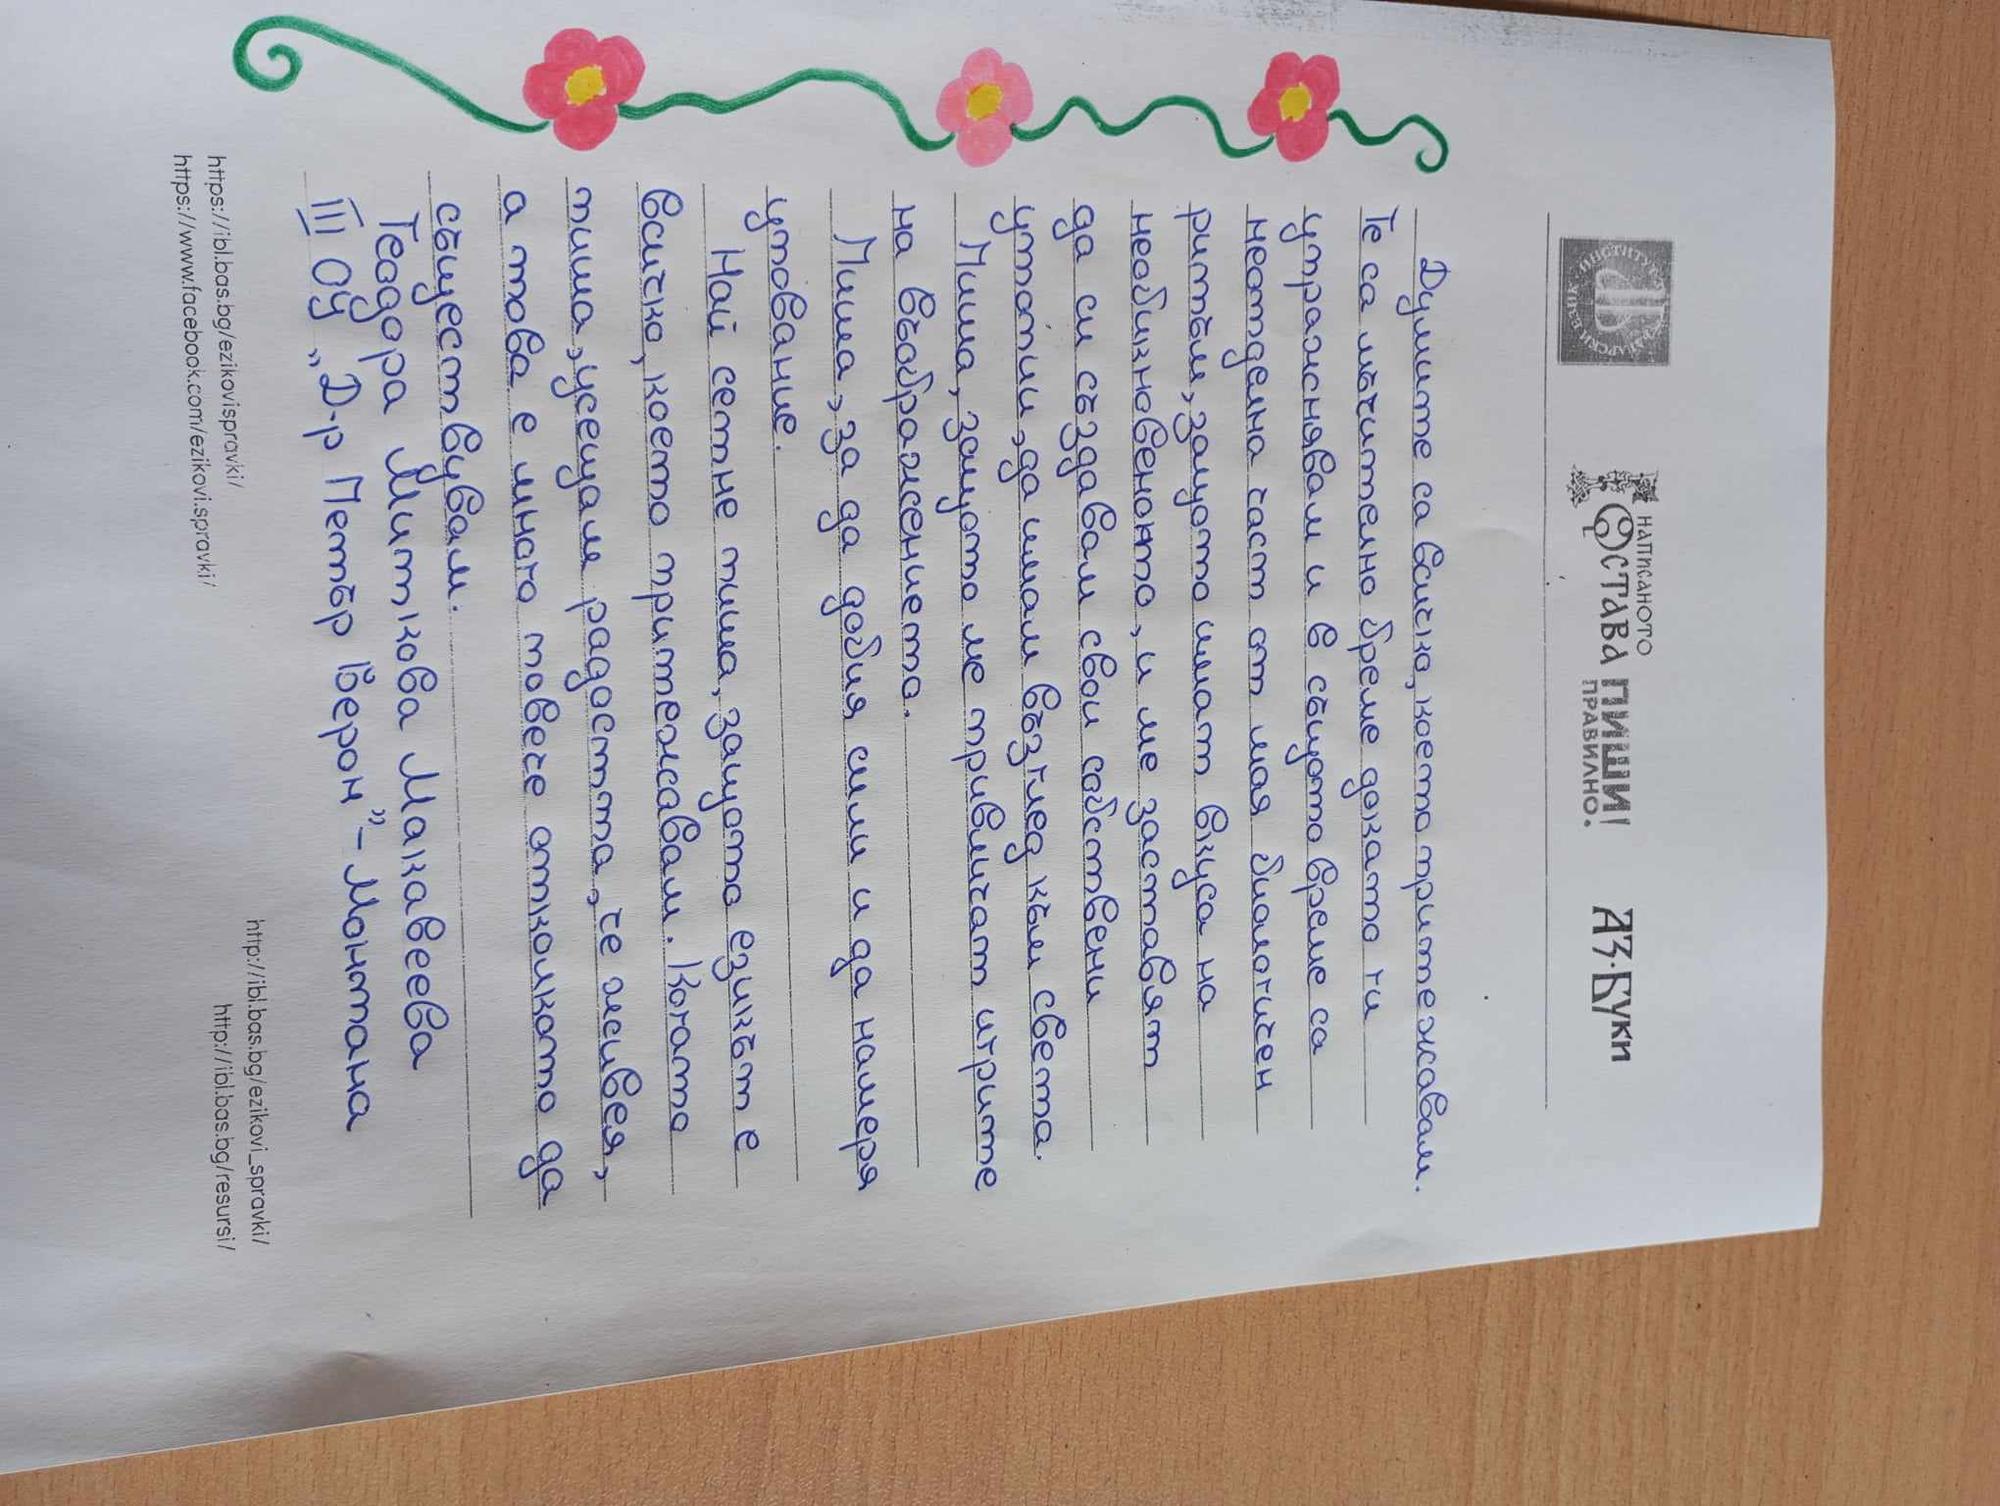 ИНСТИТУТ ЗА БЪЛГАРСКИ ЕЗИК
НАПИСАНОТО
ОСТАВА ПИШИ!
ПРАВИЛНО.
АЗ·БУКИ
Думите са всичко, което притежавам.
Те са мъчително бреме докато ги
упражнявам и в същото време са
неотделна част от моя биологичен
ритъм, защото имат вкуса на
необикновеното, и ме заставят
да си създавам свои собствени
утопии, да имам възглед към света.
Пиша, защото ме привличат игрите
на въображението.
Пиша, за да добия сили и да намеря
упование.
Най сетне пиша, защото езикът е
всичко, което притежавам. Когато
пиша, усещам радостта, че живея,
а това е много повече отколкото да
съществувам.
Теодора Миткова Макавеева
III ОУ „Д-р Петър Берон" - Монтана
https://ibl.bas.bg/ezikovispravki/
https://www.facebook.com/ezikovi.spravki/
http://ibl.bas.bg/ezikovi_spravki/
http://ibl.bas.bg/resursi/